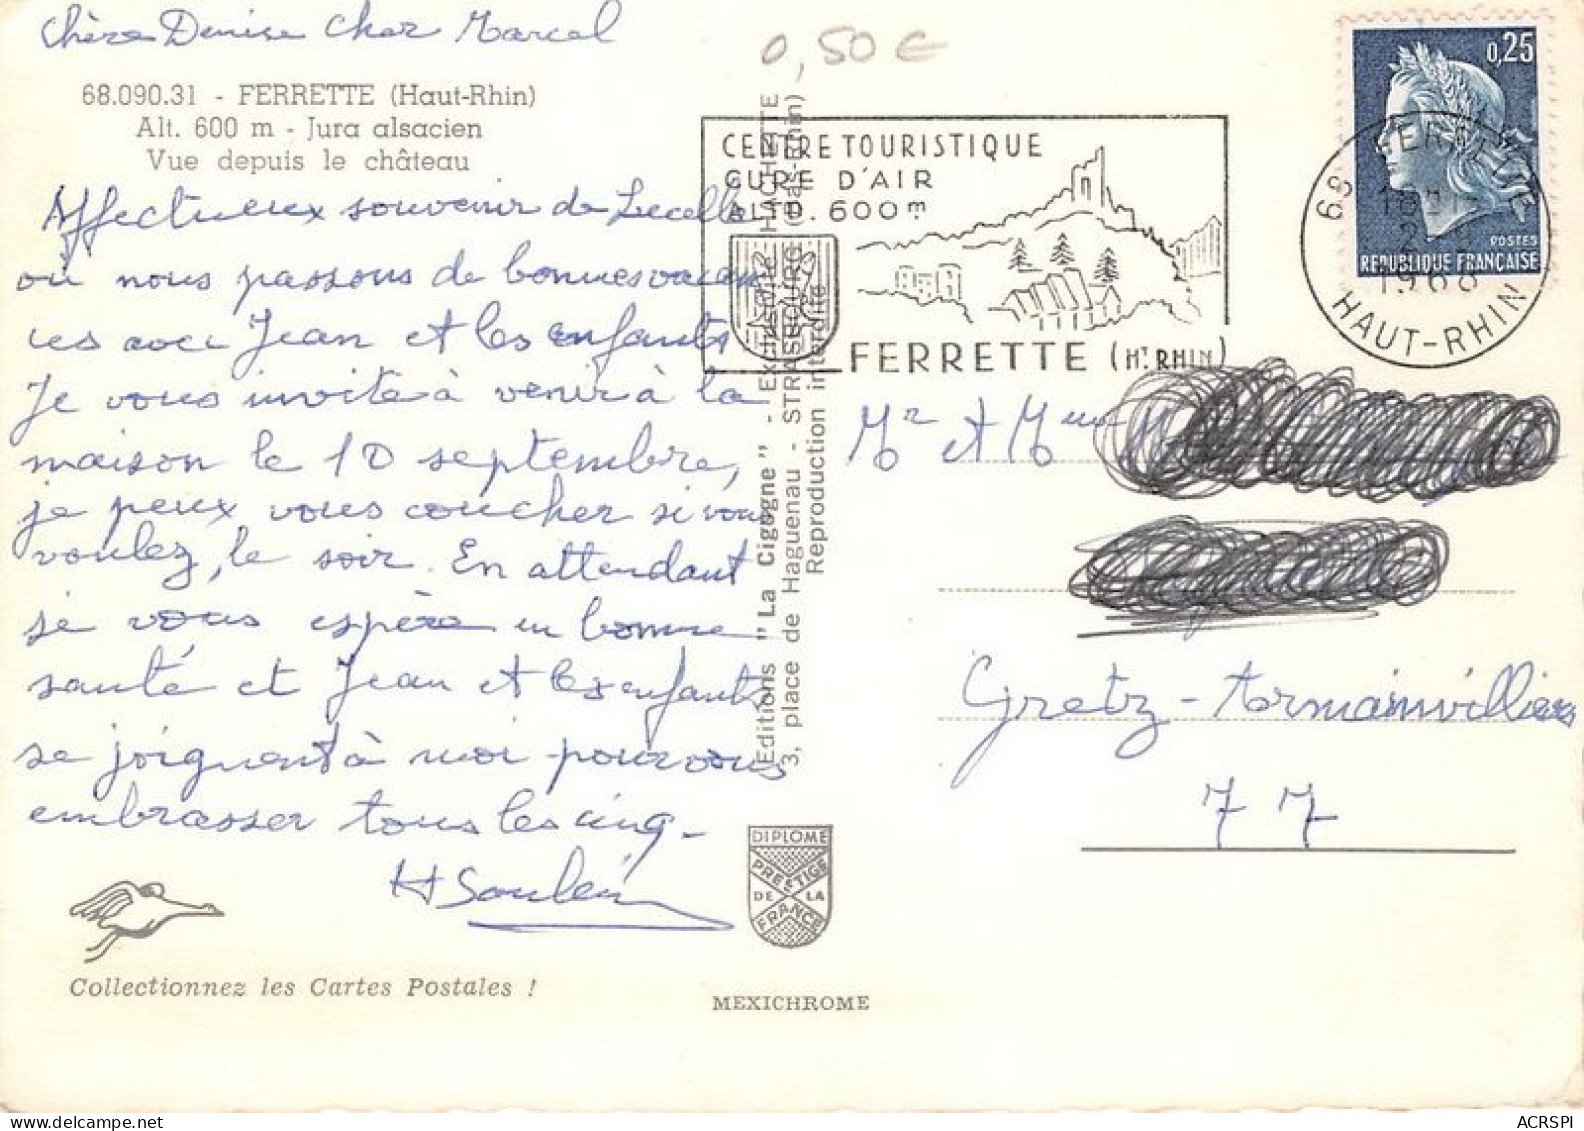 Chère Denise Cher Marcel
68.090.31 - FERRETTE (Haut-Rhin)
Alt. 600 m - Jura alsacien
Vue depuis le château
Affectueux souvenir de Lucelle
où nous passons de bonnes vacan
ces avec Jean et les enfants
Je vous invite à venir à la
maison le 10 septembre,
je peux vous coucher si vous
voulez, le soir. En attendant
je vous espère en bonne
santé et Jean et les enfants
se joignent à moi pour vous
embrasser tous les cinq -
Collectionnez les Cartes Postales !
Editions "La Cigogne" - Exclusivité HACHETTE
3, place de Haguenau - STRASBOURG (Bas-Rhin)
Reproduction interdite
DIPLOME
PRESTIGE
DE LA
FRANCE
MEXICHROME
0,50 €
CENTRE TOURISTIQUE
CURE D'AIR
ALTD. 600m
FERRETTE (HT RHIN)
0,25
POSTES
REPUBLIQUE FRANÇAISE
68 FERRETTE
1968
HAUT-RHIN
Mr et Mme
Gretz-Armainvilliers
77
ACRSPI